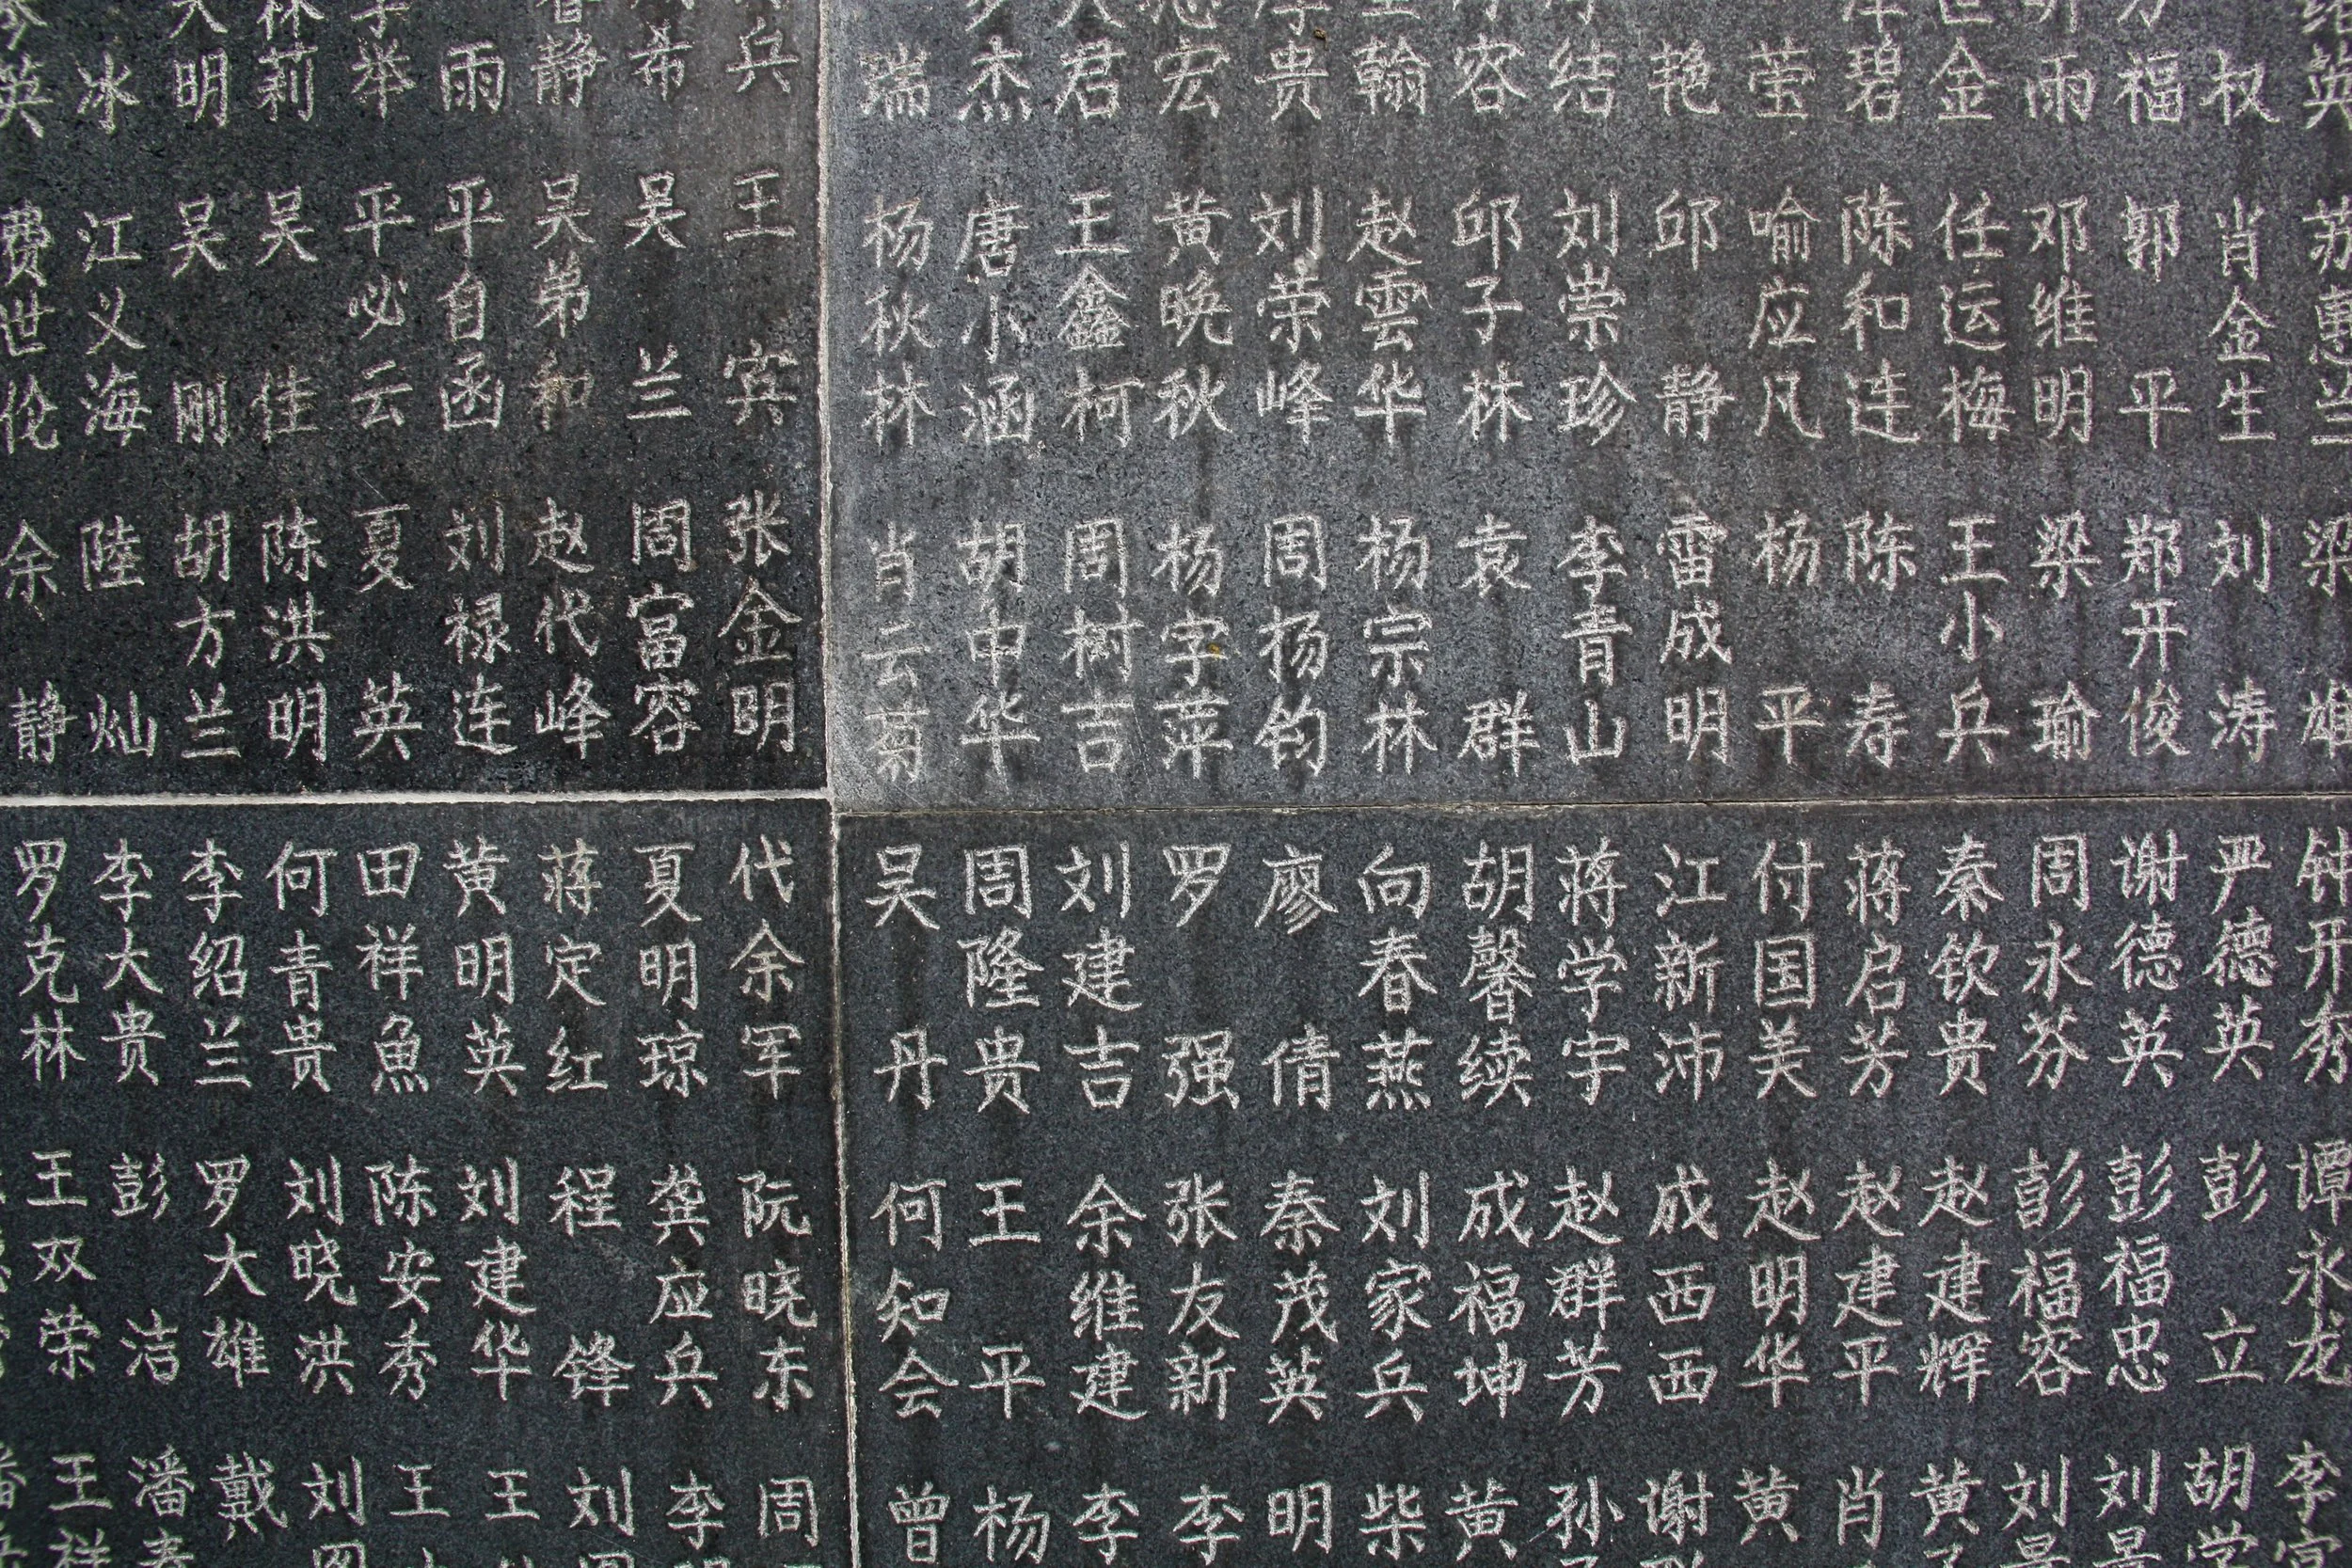 英 冰 明 莉 举 雨 静 希 兵 瑞 杰 君 宏 贵 翰 容 结 艳 莹 碧 金 雨 福 权 英
费世伦 江义海 吴刚 吴佳 平必云 平自函 吴弟和 吴兰 王宾 杨秋林 唐小涵 王鑫柯 黄晚秋 刘荣峰 赵雲华 邱子林 刘崇珍 邱静 喻应凡 陈和连 任运梅 邓维明 郭平 肖金生 苏惠兰
余静 陸灿 胡方兰 陈洪明 夏英 刘禄连 赵代峰 周富容 张金明 肖云菊 胡中华 周树吉 杨字萍 周扬钧 杨宗林 袁群 李青山 雷成明 杨平 陈寿 王小兵 梁瑜 郑开俊 刘涛 梁雄
罗克林 李大贵 李绍兰 何青贵 田祥魚 黄明英 蒋定红 夏明琼 代余军 吴丹 周隆贵 刘建吉 罗强 廖倩 向春燕 胡馨续 蒋学宇 江新沛 付国美 蒋启芳 秦钦贵 周永芬 谢德英 严德英 钟开秀
王双荣 彭洁 罗大雄 刘晓洪 陈安秀 刘建华 程锋 龚应兵 阮晓东 何知会 王平 余维建 张友新 秦茂英 刘家兵 成福坤 赵群芳 成西西 赵明华 赵建平 赵建辉 彭福容 彭福忠 彭立 谭永龙
王祥 潘 戴 刘 王 王 刘 李 周 曾 杨 李 李 明 柴 黄 孙 谢 黄 肖 黄 刘 刘 胡学 李